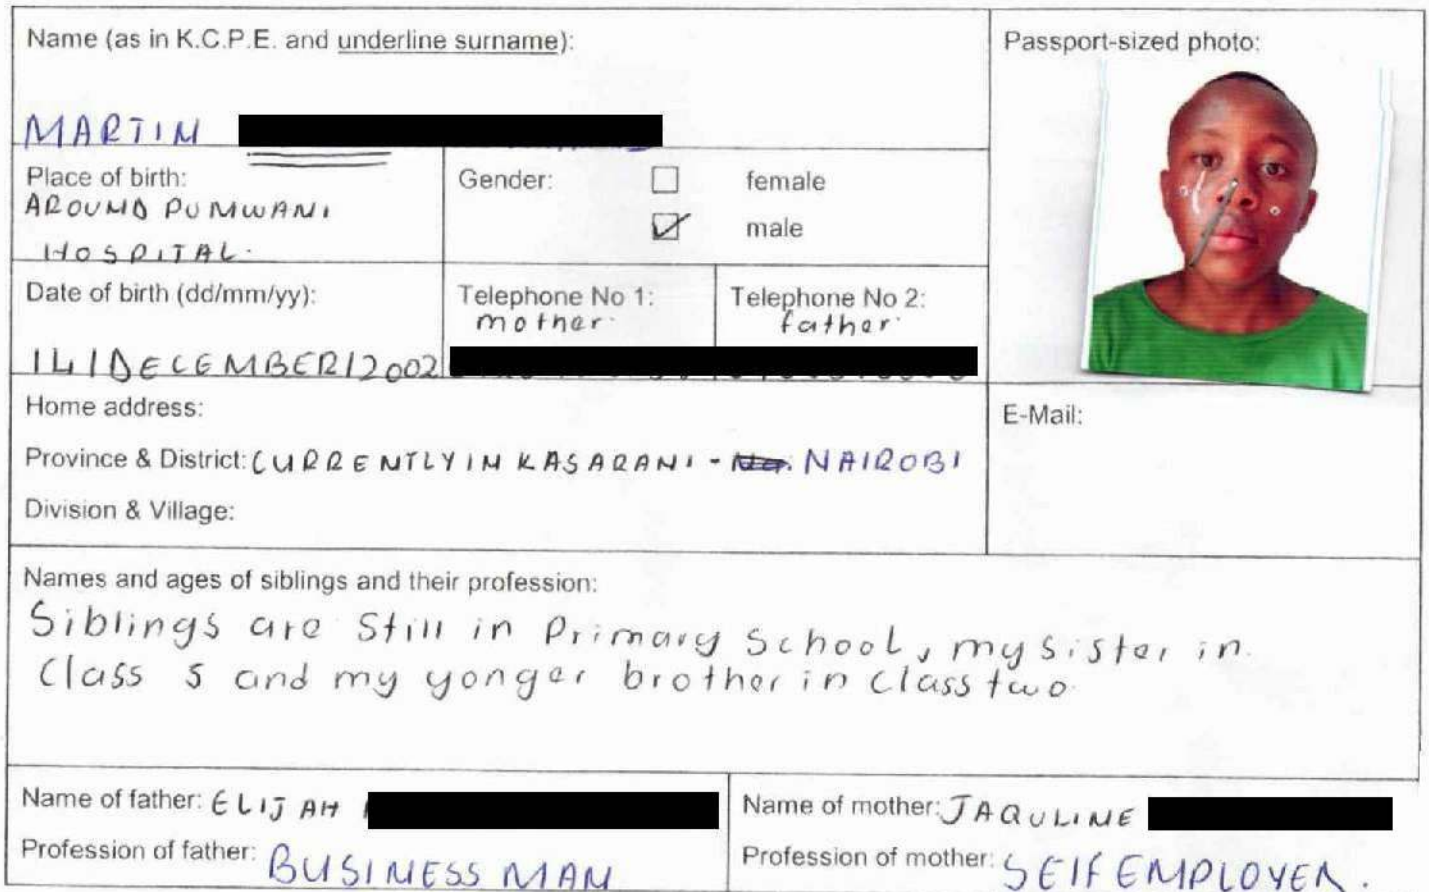 Name (as in K.C.P.E. and underline surname):
MARTIN
Passport-sized photo:
Place of birth:
AROUND PUMWANI
HOSPITAL.
Gender:
female
male
Date of birth (dd/mm/yy):
14/DECEMBER/2002
Telephone No 1:
mother.
Telephone No 2:
father.
Home address:
Province & District: CURRENTLY IN KASARANI - NAIROBI
Division & Village:
E-Mail:
Names and ages of siblings and their profession:
Siblings are Still in Primary School, my sister in
Class 5 and my yonger brother in Class two.
Name of father: ELIJAH
Profession of father: BUSINESS MAN
Name of mother: JAQULINE
Profession of mother: SELF EMPLOYER.